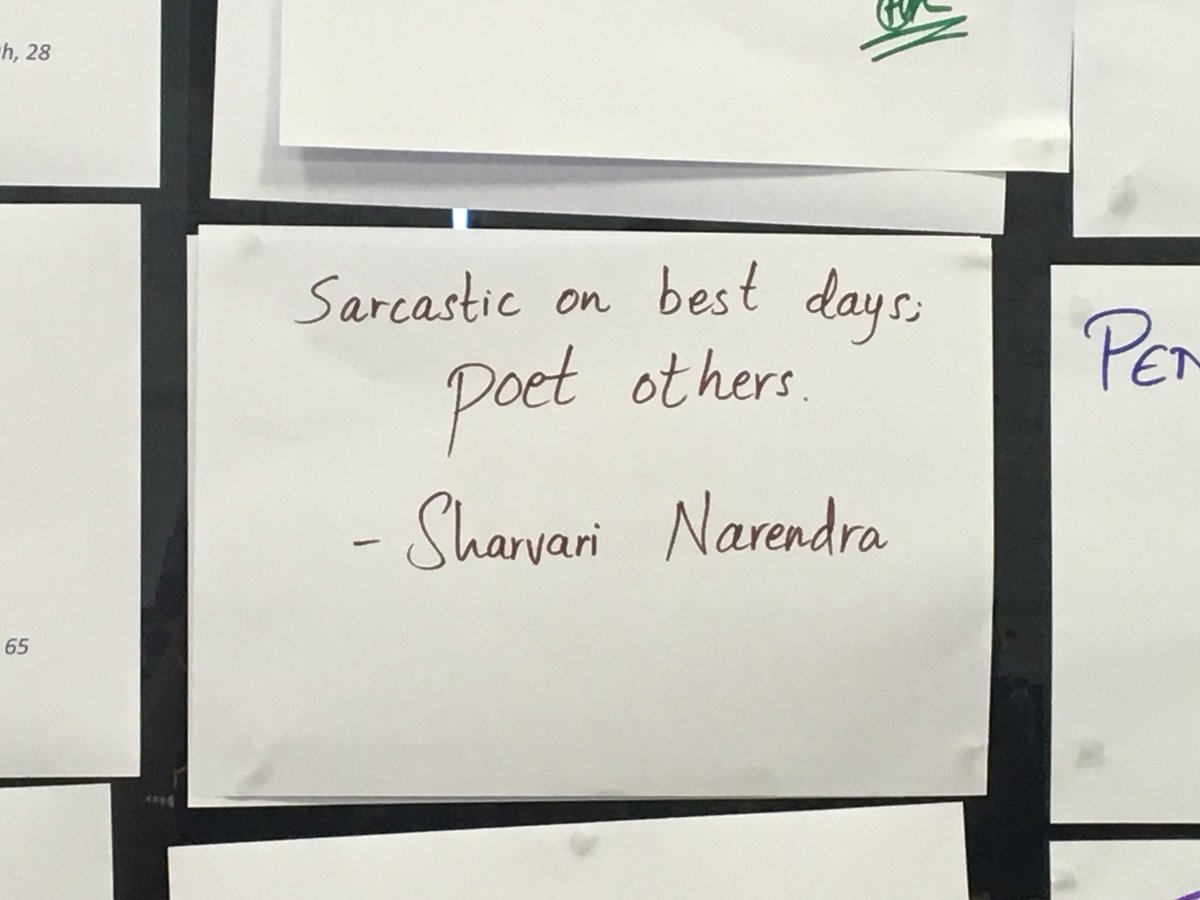 h, 28
Sarcastic on best days;
poet others.
- Sharvari Narendra
PEN
65